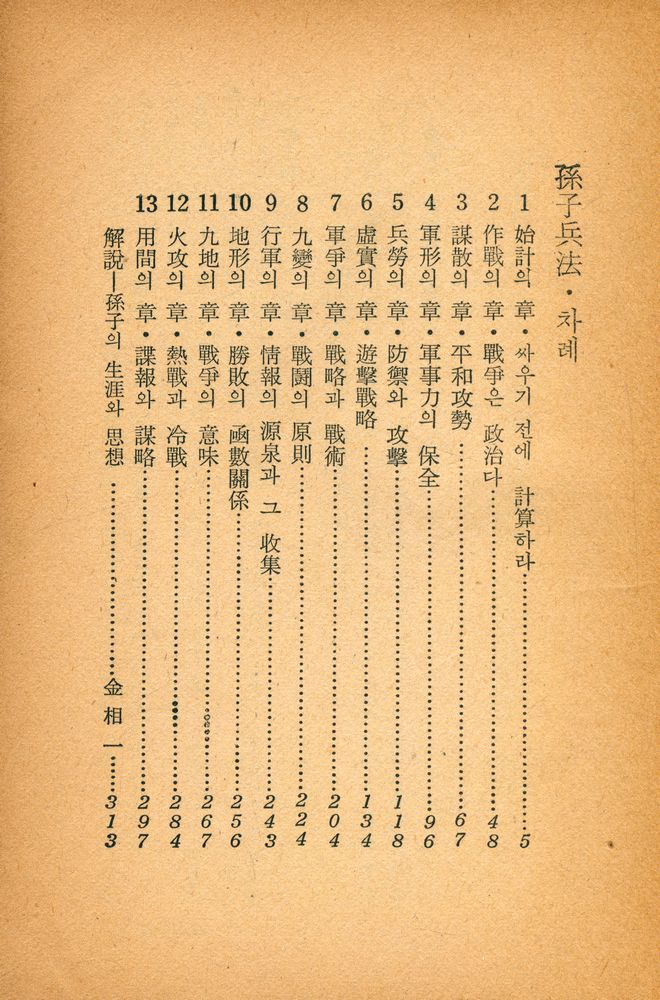 孫子兵法・차례
1 始計의 章・싸우기 전에 計算하라……5
2 作戰의 章・戰爭은 政治다……48
3 謀散의 章・平和攻勢……67
4 軍形의 章・軍事力의 保全……96
5 兵勞의 章・防禦와 攻擊……118
6 虛實의 章・遊擊戰略……134
7 軍爭의 章・戰略과 戰術……204
8 九變의 章・戰鬪의 原則……224
9 行軍의 章・情報의 源泉과 그 收集……243
10 地形의 章・勝敗의 函數關係……256
11 九地의 章・戰爭의 意味……267
12 火攻의 章・熱戰과 冷戰……284
13 用間의 章・諜報와 謀略……297
解說—孫子의 生涯와 思想……金相一……313